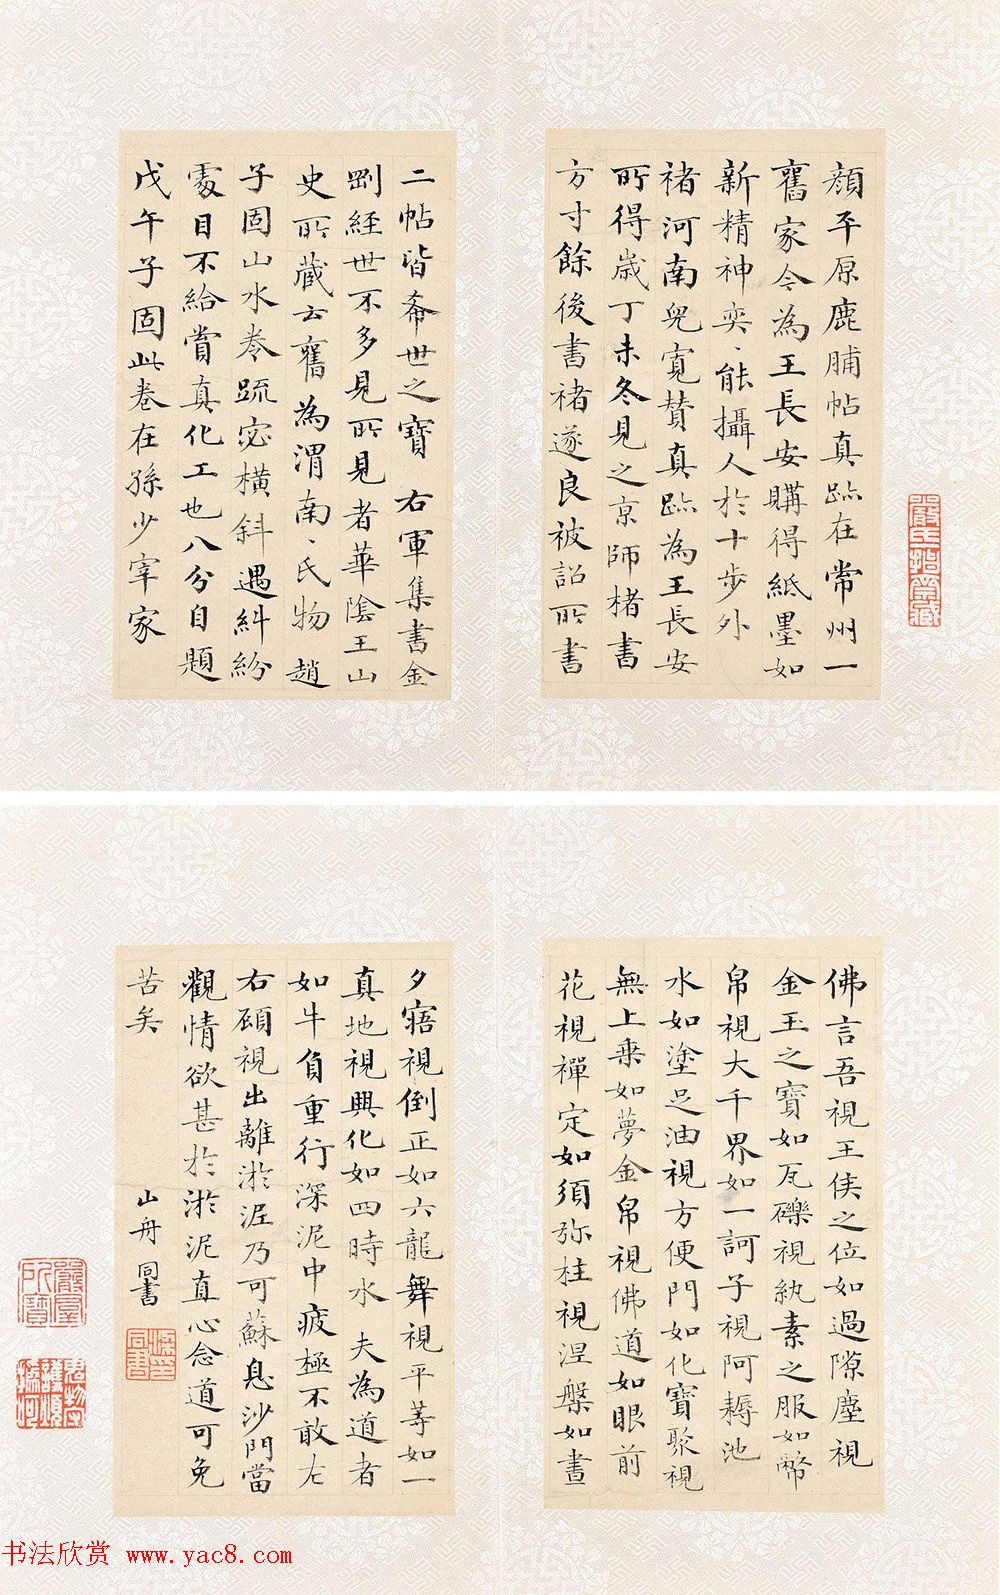 顔平原鹿脯帖真跡在常州一
舊家今為王長安購得紙墨如
新精神奕〻能攝人於十步外
褚河南兒寬贊真跡為王長安
所得歲丁未冬見之京師楮書
方寸餘後書褚遂良被詔所書
二帖皆希世之寶 右軍集書金
剛經世不多見所見者華陰王山
史所藏云舊為渭南〻氏物 趙
子固山水卷疏宓橫斜遇糾紛
處目不給賞真化工也八分自題
戊午子固此卷在孫少宰家
嚴氏
佛言吾視王侯之位如過隙塵視
金玉之寶如瓦礫視紈素之服如幣
帛視大千界如一訶子視阿耨池
水如塗足油視方便門如化寶聚視
無上乘如夢金帛視佛道如眼前
花視禪定如須弥柱視涅槃如晝
夕寤視倒正如六龍舞視平等如一
真地視興化如四時水 夫為道者
如牛負重行深泥中疲極不敢左
右顧視出離淤泥乃可蘇息沙門當
觀情欲甚於淤泥直心念道可免
苦矣 山舟 同書
梁印同書
书法欣赏 www.yac8.com